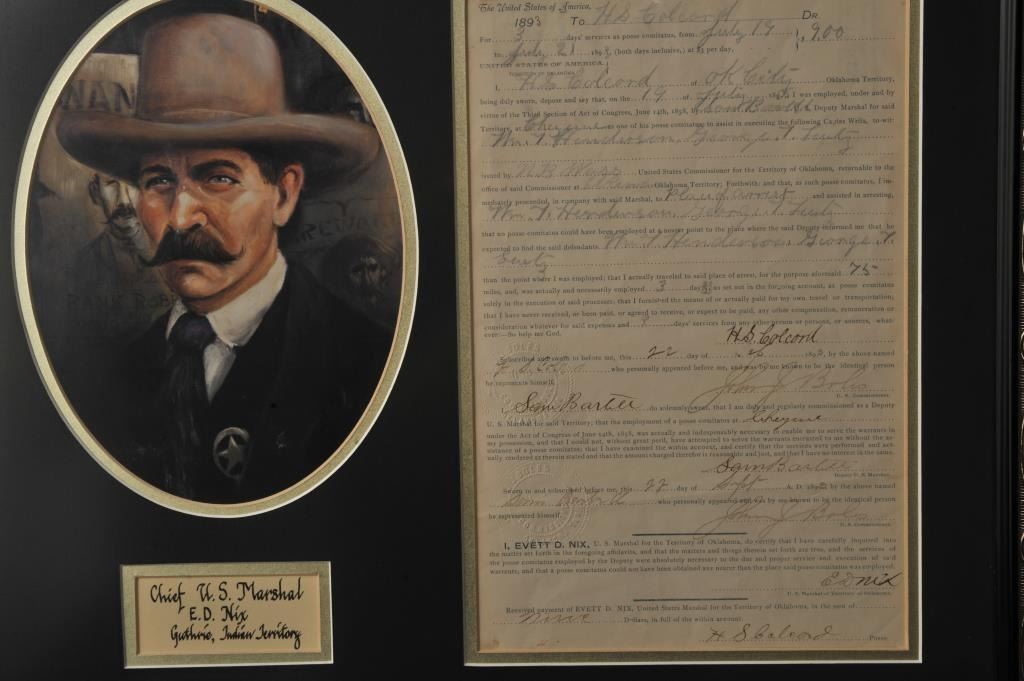 The United States of America,
1893 To H S Colcord DR.
For 3 days' services as posse comitatus, from July 19 9.00
to July 21 1893 (both days inclusive,) at $3 per day,
UNITED STATES OF AMERICA,
TERRITORY OF OKLAHOMA
I, H S Colcord of OK City Oklahoma Territory,
being duly sworn, depose and say that, on the 19 of July I was employed, under and by
virtue of the Third Section of Act of Congress, June 14th, 1858, by Sam Bartell Deputy Marshal for said
Territory, at Cheyenne as one of his posse comitatus to assist in executing the following to-wit:
Wm T. Henderson, George T.
issued by United States Commissioner for the Territory of Oklahoma, returnable to the
office of said Commissioner at Oklahoma Territory; Forthwith: and that, as such posse comitatus, I im-
mediately proceeded, in company with said Marshal, to and assisted in arresting,
Wm T. Henderson George T
that no posse comitatus could have been employed at a nearer point to the place where the said Deputy informed me that he
expected to find the said defendants. Wm T Henderson George T.
than the point where I was employed; that I actually traveled to said place of arrest, for the purpose aforesaid 75
miles, and, was actually and necessarily employed 3 days as set out in the forgoing account, as posse comitatus
solely in the execution of said processes; that I furnished the means of or actually paid for my own travel or transportation;
that I have never received, or been paid, or agreed to receive, or expect to be paid, any other compensation, remuneration or
consideration whatever for said expenses and days' services from any other person or persons, or sources, what-
ever:—So help me God.
H.S. Colcord
Subscribed and sworn to before me, this 22 day of 189 , by the above named
who personally appeared before me, and was by me known to be the identical person
he represents himself. John J. Boles
U. S. Commissioner.
I, Sam Bartell do solemnly swear, that I am duly and regularly commissioned as a Deputy
U. S. Marshal for said Territory; that the employment of a posse comitatus at Cheyenne
under the Act of Congress of June 14th, 1858, was actually and indispensably necessary to enable me to serve the warrants in
my possession, and that I could not, without great peril, have attempted to serve the warrants entrusted to me without the as-
sistance of a posse comitatus; that I have examined the within account, and certify that the services were performed and act-
ually rendered as therein stated and that the amount charged therefor is reasonable and just, and that I have no interest in the same.
Sam Bartell
Deputy U. S. Marshal.
Sworn to and subscribed before me, this 22 day of Sept A. D. 189 by the above named
Sam Bartell who personally appeared and was by me known to be the identical person
he represented himself. John J Boles
U. S. Commissioner.
I, EVETT D. NIX, U. S. Marshal for the Territory of Oklahoma, do certify that I have carefully inquired into
the matter set forth in the foregoing affidavits, and that the matters and things therein set forth are true, and the services of
the posse comitatus employed by the Deputy were absolutely necessary to the due and proper service and execution of said
warrants; and that a posse comitatus could not have been obtained any nearer than the place said posse comitatus was employed.
E D Nix
U. S. Marshal of Territory of Oklahoma.
Received payment of EVETT D. NIX, United States Marshal for the Territory of Oklahoma, in the sum of
Nine Dollars, in full of the within account.
H S Colcord Posse.
Chief U.S. Marshal
E.D. Nix
Guthrie, Indian Territory